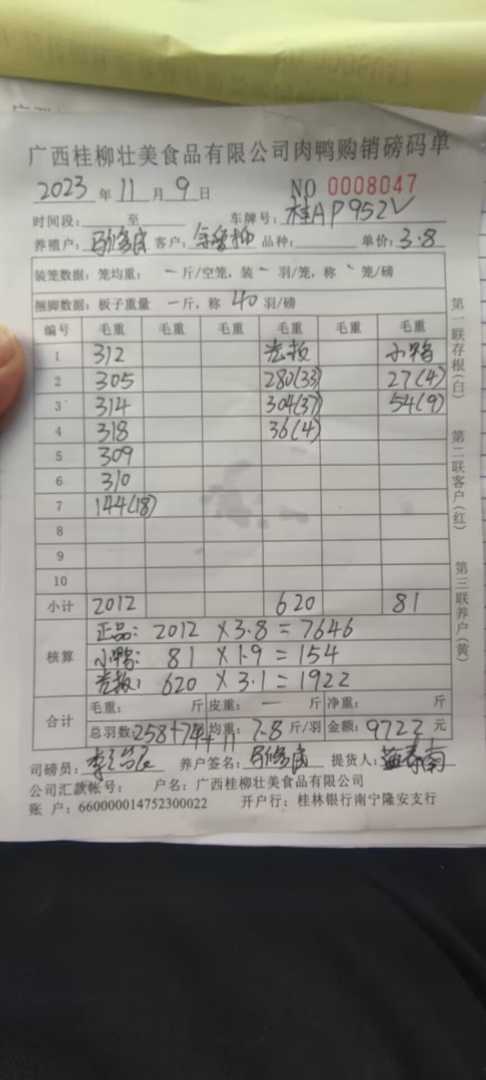 广西桂柳壮美食品有限公司肉鸭购销磅码单
2023 年 11 月 9 日 NO 0008047
时间段: 至 车牌号: 桂AP952V
养殖户: 客户: 品种: 单价: 3.8
装笼数据: 笼均重: 一 斤/空笼, 装 一 羽/笼, 称 笼/磅
捆脚数据: 板子重量 一 斤, 称 40 羽/磅
编号 毛重 毛重 毛重 毛重 毛重 毛重
1 312 小鸭
2 305 280(33) 27(4)
3 314 304(37) 54(9)
4 318 36(4)
5 309
6 310
7 144(18)
8
9
10
小计 2012 620 81
核算 正品: 2012 ×3.8 = 7646
小鸭: 81 ×1.9 = 154
620 ×3.1 = 1922
合计 毛重: 斤 皮重: 一 斤 净重: 斤
总羽数: 258+74+11 均重: 7.8 斤/羽 金额: 9722 元
司磅员: 养户签名: 提货人:
公司汇款帐号: 户名: 广西桂柳壮美食品有限公司
账 户: 660000014752300022 开户行: 桂林银行南宁隆安支行
第一联存根(白)
第二联客户(红)
第三联养户(黄)